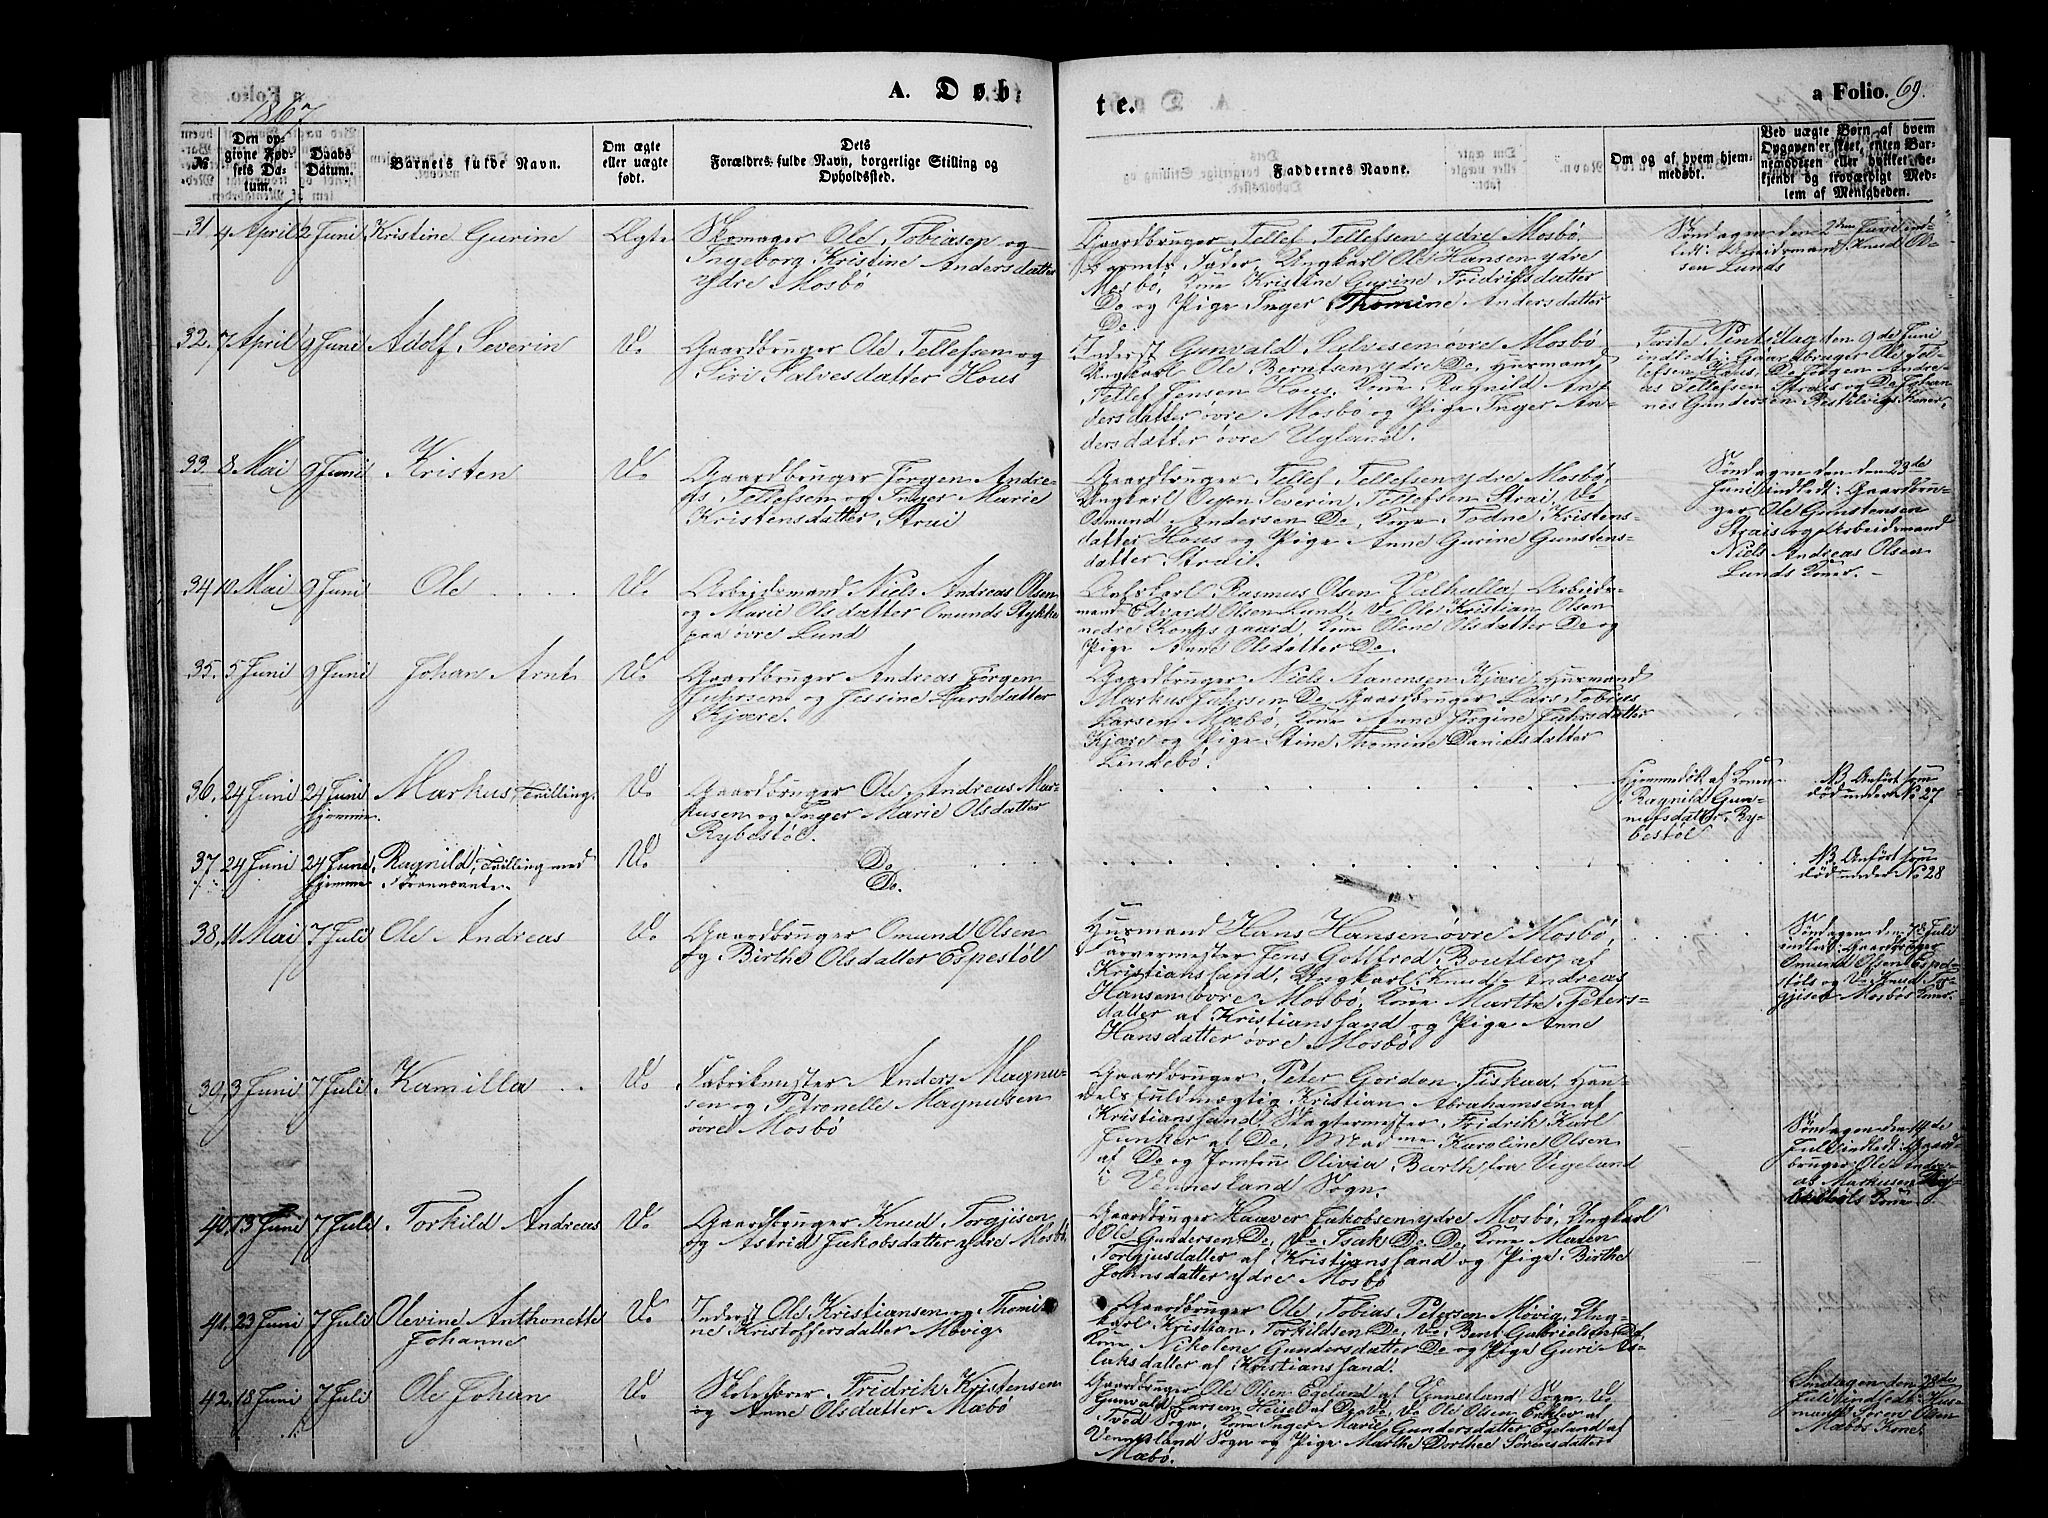 1867
A. Døb-
te.
a Folio. 69.
№
Den op-
givne Fød-
sels Da-
tum.
Daabs
Datum.
Barnets fulde Navn.
Om ægte
eller uægte
født.
Dets
Forældres fulde Navn, borgerlige Stilling og
Opholdssted.
Faddernes Navne.
Om og af hvem hjem-
medøbt.
Ved uægte Børn af hvem
Opgaven er skeet, enten Bar-
nemoderen eller hvilket be-
kjendt og troværdigt Med-
lem af Menigheden.
31 4 April 2 Juni Kristine Gurine Ægte
Skomager Ole Tobiasen og
Ingeborg Kristine Andersdatter
ydre Mosbø
Gaardbruger Tellef Tellefsen ydre Mosbø,
Barnets Fader, Ungkarl Ole Hansen ydre
Mosbø, Kone Kristine Gurine Fridriksdatter
Do og Pige Inger Thomine Andersdatter
Do.
Søndagen den 2den Juni ind-
ledt: Arbeidsmand Knud Ol-
sen Lunds
32. 7 April 9 Juni Adolf Severin Do
Gaardbruger Ole Tellefsen og
Siri Salvesdatter Hous
Inderst Gunvald Salvesen øvre Mosbø
Ungkarl Ole Berntsen ydre Do, Husmand
Tellef Jensen Hous, Kone Ragnild An-
dersdatter øvre Mosbø og Pige Inger An-
dersdatter øvre Ugland.
Første Pintsedag den 9de Juni
indledt: Gaardbruger Ole Tel-
lefsen Hous, Do Jørgen Andre-
as Tellefsen Strais og Do Johan-
nes Gundersen Koner.
33 8 Mai 9 Juni Kristen Do
Gaardbruger Jørgen Andre-
as Tellefsen og Inger Marie
Kristensdatter Strai
Gaardbruger Tellef Tellefsen ydre Mosbø,
Ungkarl Severin Tellefsen Strai, Do
Osmund Andersen Do, Kone Todne Kristens-
datter Hous og Pige Anne Gurine Gunstens-
datter Strai.
Søndagen den den 23de
Juni indledt: Gaardbru-
ger Ole Gunstensen
Strais og Arbeidsmand
Niels Andreas Olsen
Lunds Koner. -
34 10 Mai 9 Juni Ole Do
Arbeidsmand Niels Andreas Olsen
og Marie Olsdatter Omunds Stykke
paa øvre Lund
Rasmus Olsen Valhalla, Arbeids-
mand Edvard Olsen Lund, Do Ole Kristian Olsen
nedre Kongsgaard, Kone Olene Olsdatter Do og
Pige Anne Olsdatter Do.
35. 5 Juni 9 Juni Johan Arnt Do
Gaardbruger Andreas Jørgen
Jahrsen og Jessine Larsdatter
Kjære.
Gaardbruger Niels Aanensen Kjære, Husmand
Markus Jahrsen Do, Gaardbruger Lars Tobias
Larsen Mæbø, Kone Anne Jørgine Jahrsdatter
Kjære og Pige Stine Thomine Danielsdatter
Lindebø.
36. 24 Juni 24 Juni
hjemme
Markus, Tvilling. Do
Gaardbruger Ole Andreas Mar-
kusen og Inger Marie Olsdatter
Rybestøl.
Hjemmedøbt af Kone
Ragnild Gun-
nufsdatter, Ry-
bestøl
NB Anført som
død under No 27
37 24 Juni 24 Juni
hjemme
Ragnild, Tvilling med
Foranstaaende. Do
Do
Do.
NB. Anført som
død under No 28
38, 11 Mai 7 Juli Ole Andreas Do
Gaardbruger Omund Olsen
og Birthe Olsdatter Espestøl
Husmand Hans Hansen øvre Mosbø,
Farvermester Jens Gottfred Boutler af
Kristianssand, Ungkarl Knud Andreas
Hansen øvre Mosbø, Kone Marthe Peters-
datter af Kristianssand og Pige Anne
Hansdatter øvre Mosbø
Søndagen den 7de Juli
indledt: Gaardbruger
Omund Olsen Espe-
støls og Do Knud Tor-
gjisen Mosbøs Koner.
39, 3 Juni 7 Juli. Kamilla Do
Fabrikmester Anders Magnu-
sen og Petronelle Magnusen
øvre Mosbø
Gaardbruger Peter Gordon Fiskaa, Han-
delsfuldmægtig Kristian Abrahamsen af
Kristianssand, Slagtermester Fridrik Karl
Junker af Do, Madme Karoline Olsen
af Do og Jomfru Olivia Barth fra Vigeland
i Vennesland Sogn.
Søndagen den 14de
Juli indledt: Gaard-
bruger Ole Andre-
as Markusen Ry-
bestøls Kone
40. 13 Juni 7 Juli Torkild Andreas Do
Gaardbruger Knud Torgjisen
og Astrid Jakobsdatter ydre Mosbø
Gaardbruger Haaver Jakobsen ydre Mosbø, Ungkarl
Ole Gundersen Do, Do Isak Do Do, Kone Maren
Torgjusdatter af Kristianssand og Pige Birthe
Johnsdatter ydre Mosbø
41. 23 Juni 7 Juli Olevine Anthonette
Johanne Do
Inderst Ole Kristiansen og Thomi-
ne Kristoffersdatter Møvig
Gaardbruger Ole Tobias Petersen Møvig, Ung-
karl Kristian Torkildsen Do, Do Bent Gabrielsen Do,
Kone Nikolene Gundersdatter Do og Pige Guri As-
laksdatter af Kristianssand.
42. 18 Juni 7 Juli Ole Johan Do
Skolelærer Fridrik Kristensen
og Anne Olsdatter Mæbø
Gaardbruger Ole Olsen Egeland af Vennesland Sogn, Do
Gunvald Larsen Heisel af Do, Do Ole Olsen af
Tved Sogn, Kone Inger Marie Gundersdatter Egeland af
Vennesland Sogn og Pige Marthe Dorthea Sørensdatter
Mæbø.
Søndagen den 28de
Juli indledt: Hus-
mand Søren Olsen
Mæbøs Kone.